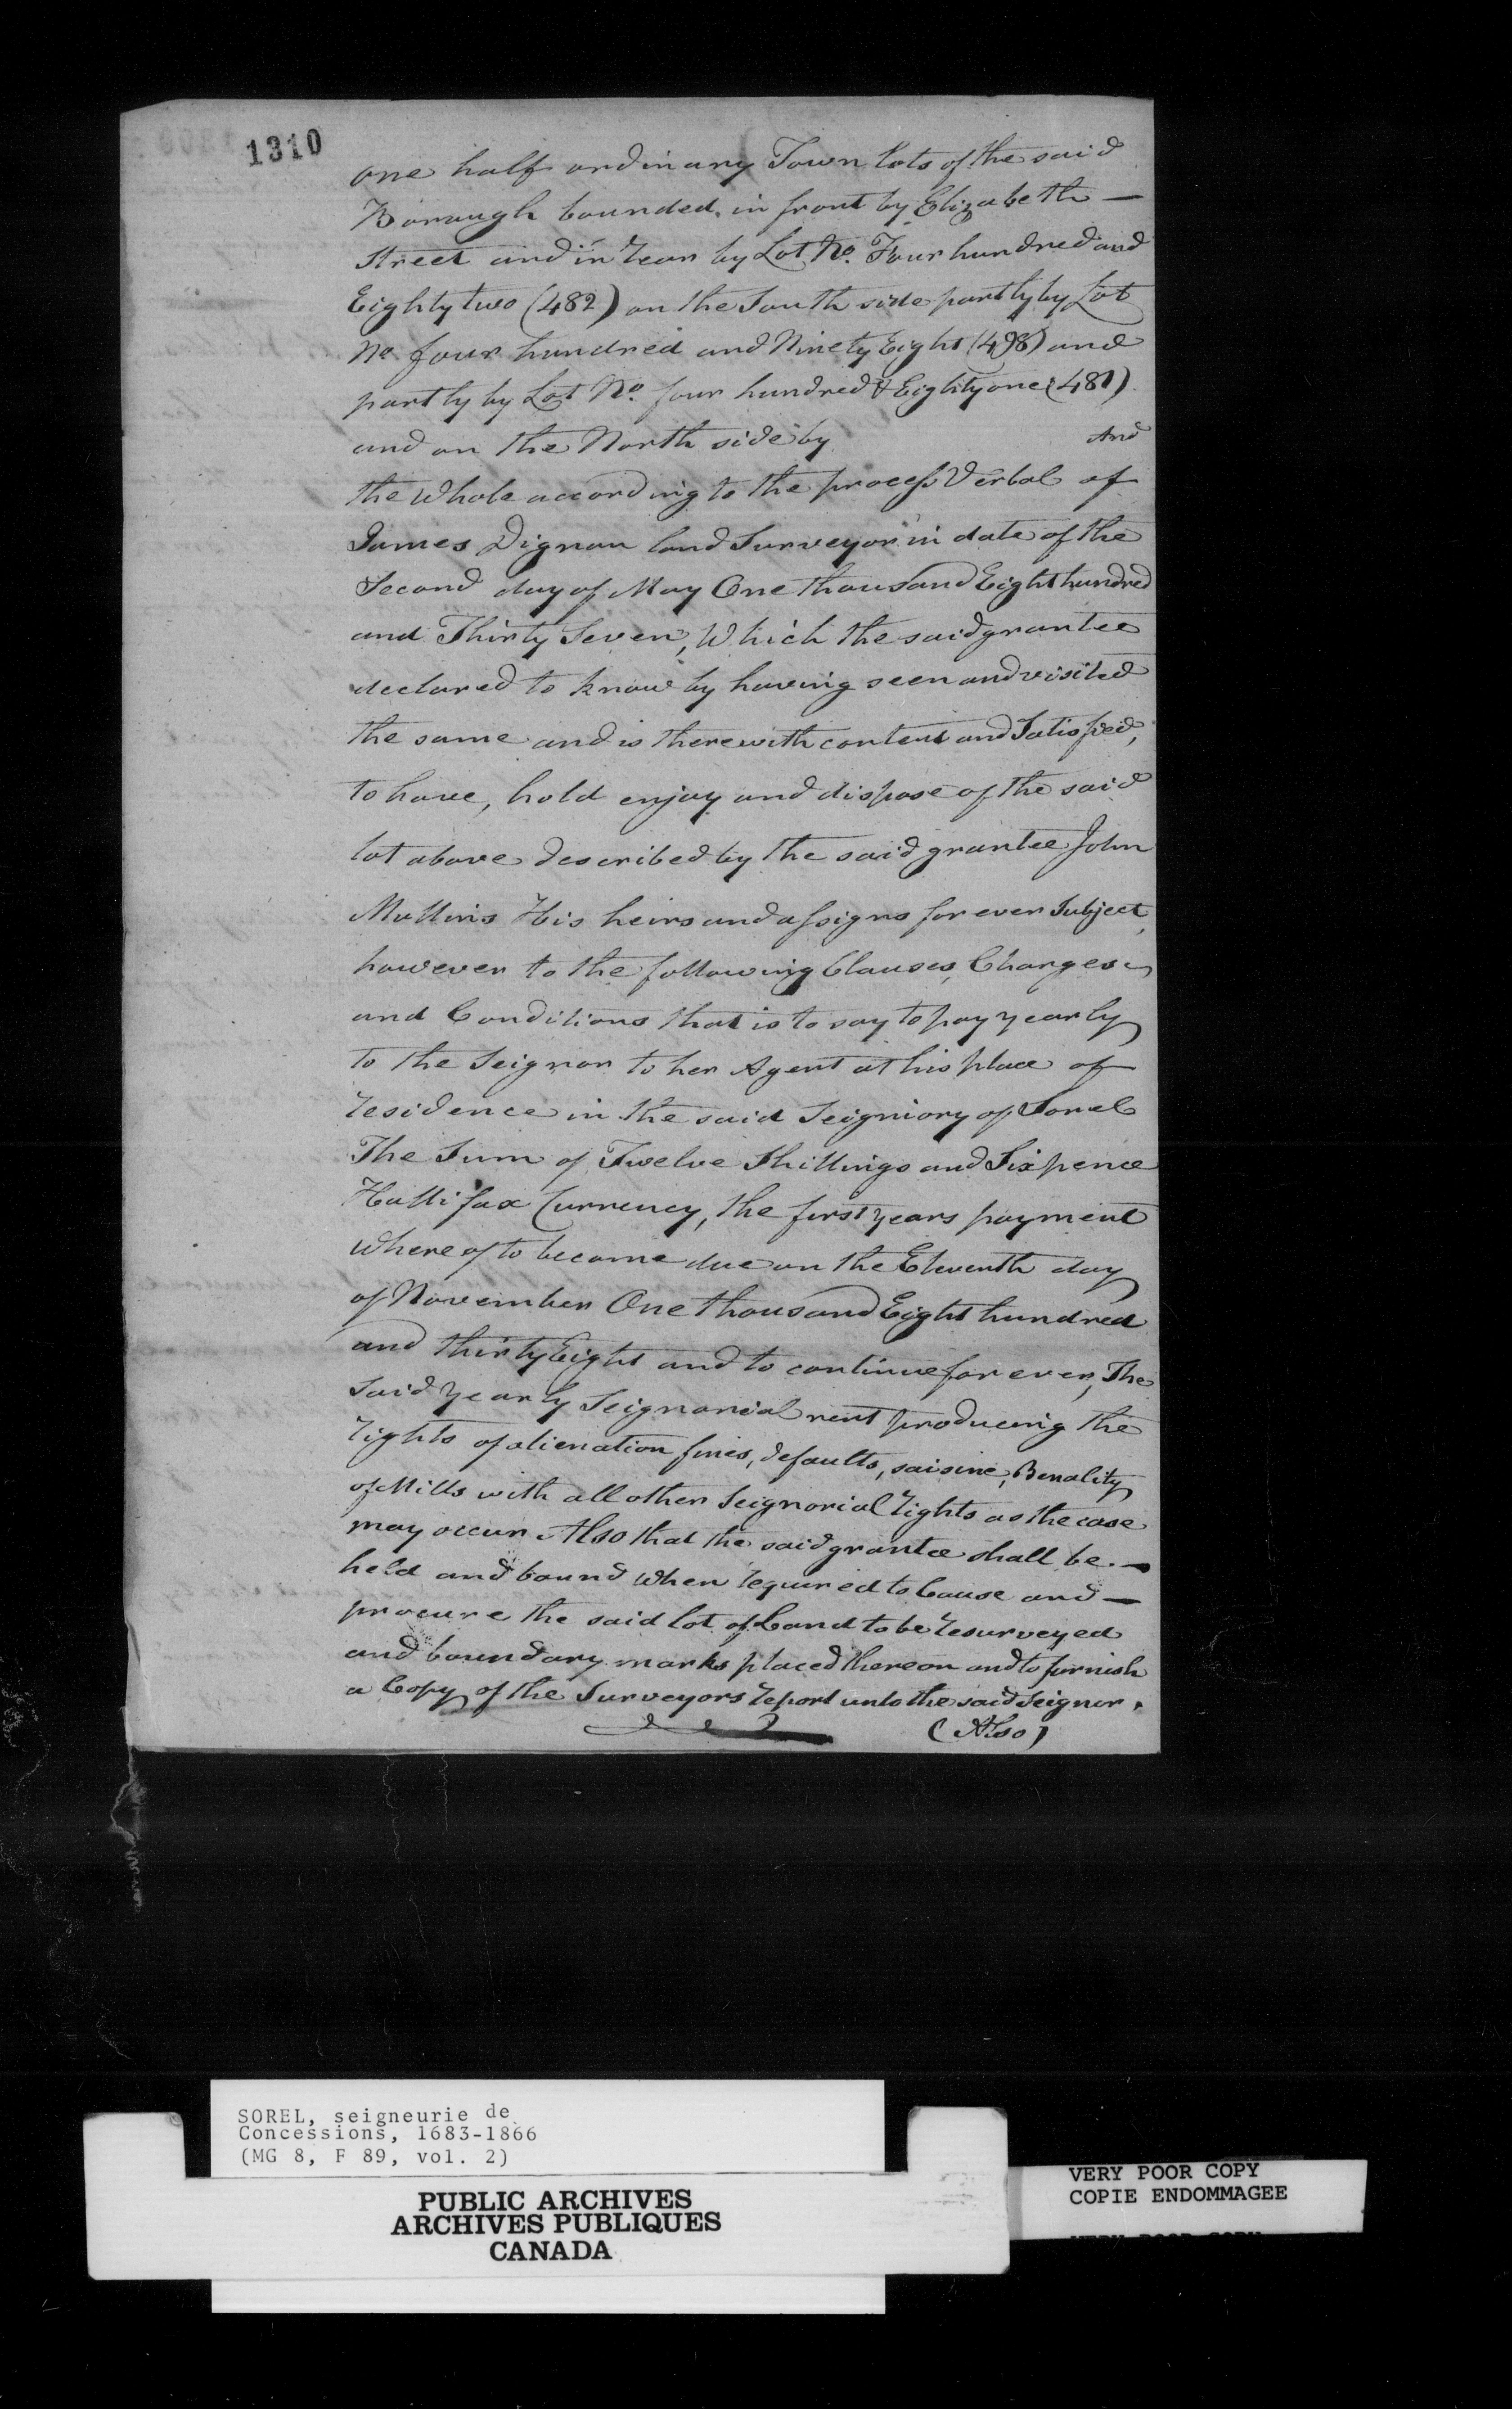 1310
one half ordinary Town lots of the said
Borough bounded in front by Elizabeth —
Street and in rear by Lot No. Four hundred and
Eighty two (482) on the South side partly by Lot
No four hundred and Ninety Eight (498) and
partly by Lot No. four hundred & Eighty one (481)
and on the North side by And
the Whole according to the process Verbal of
James Dignan land Surveyor in date of the
Second day of May One thousand Eight hundred
and Thirty Seven, Which the said grantee
declared to know by having seen and visited
the same and is therewith content and Satisfied,
to have, hold enjoy and dispose of the said
lot above described by the said grantee John
Mullins His heirs and assigns for ever Subject,
however to the following Clauses, Charges
and Conditions that is to say to pay yearly
to the Seignor to her Agent at his place of
residence in the said Seigniory of Sorel
The Sum of Twelve Shillings and Sixpence
Hallifax Currency, the first years payment
Where of to become due on the Eleventh day
of November One thousand Eight hundred
and thirty Eight and to continue for ever, The
said yearly Seignorial rent producing the
rights of alienation fines, defaults, saisine, Benality
of Mills with all other Seignorial rights as the case
may occur. Also that the said grantee shall be —
held and bound When required to Cause and —
procure the said lot of Land to be resurveyed
and boundary marks placed thereon and to furnish
a Copy of the Surveyors report unto the said Seignor.
(Also)
SOREL, seigneurie de
Concessions, 1683-1866
(MG 8, F 89, vol. 2)
PUBLIC ARCHIVES
ARCHIVES PUBLIQUES
CANADA
VERY POOR COPY
COPIE ENDOMMAGEE
VERY POOR COPY